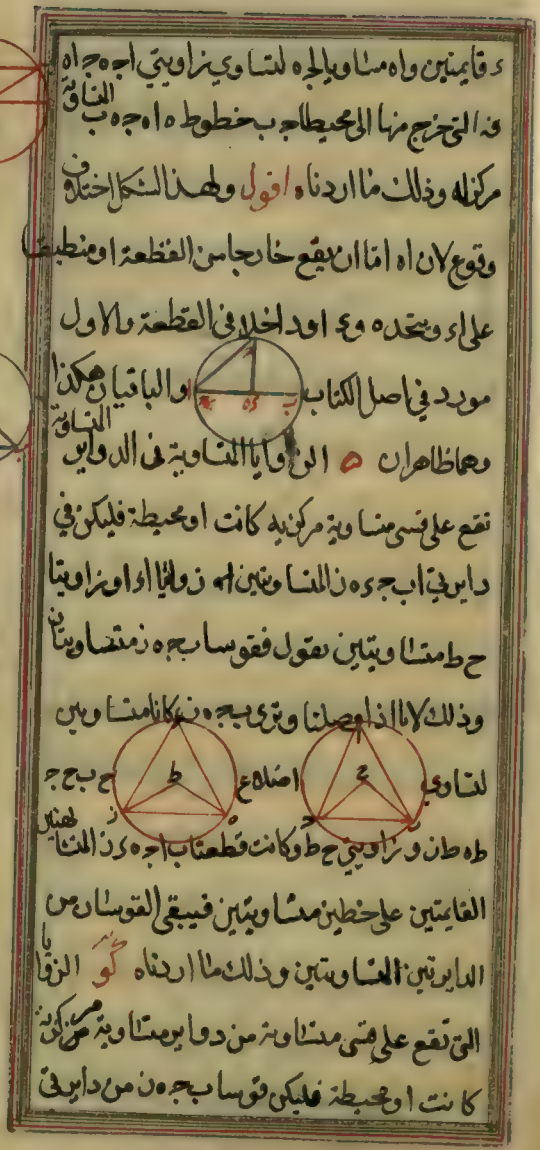 ء قايمتين واه مساو يالجه لتساوي زاويتي اجه جاه
فه التي خرج منها الى محيط اجب خطوط ه اه جه ب المتساوية
مركز له وذلك ما اردناه اقول ولهذا الشكل اختلاف
وقوع لان اه اما ان يقع خارجا من القطعة او منطبقا
على اء ويتحد ه وء او داخلا في القطعة والاول
مورد في اصل الكتاب والباقيان هكذا
وهما ظاهران ه الزوايا المتساوية في الدواير المتساوية
تقع على قسي متساوية مركزيه كانت او محيطة فليكن في
دايرتي اب جء ه ز المتساويتين زاويتا اء او زاويتا
ح ط متساويتين نقول فقوسا ب جه ز متساويتان
وذلك لانا اذا وصلنا وتري ب جه ز كانا متساويين
لتساوي اضلاع ح ب ح ج
ط ه ط ز وزاويتي ح ط وكانت قطعتا ب اجه ء ز المتشابهتين
القايمتين على خطين متساويتين فيبقى القوسان من
الدايرتين المتساويتين وذلك ما اردناه كو الزوايا
التي تقع على قسي متساوية من دواير متساوية مركزية
كانت او محيطة فليكن قوسا ب جه ز من دايرتي